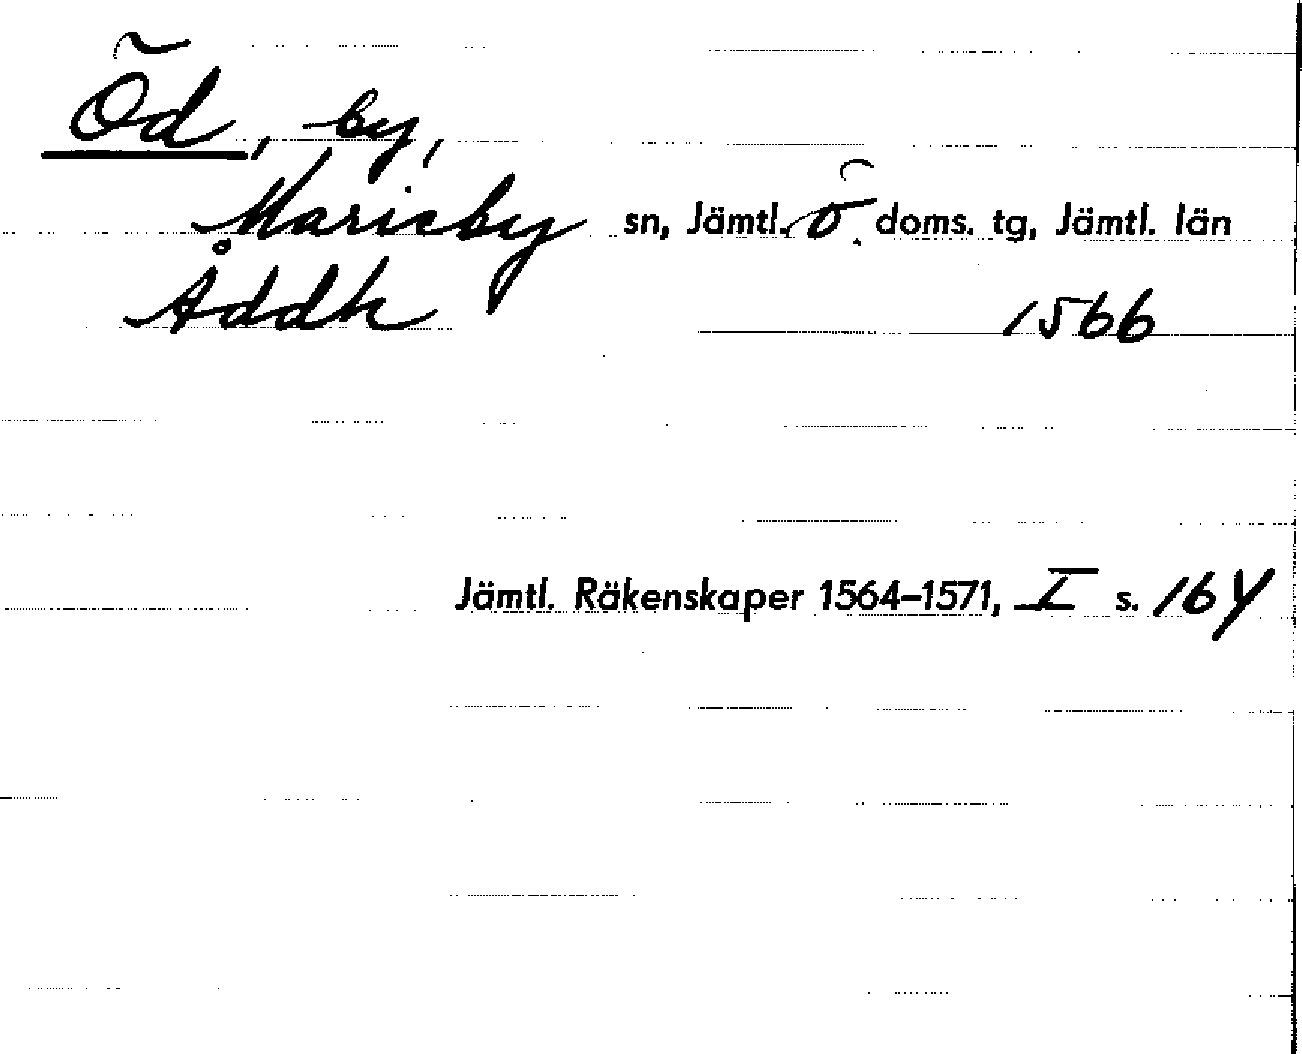 Öd, by,
Marieby sn, Jämtl. ö. doms. tg, Jämtl. län
Åddh 1566
Jämtl. Räkenskaper 1564–1571, I s. 164